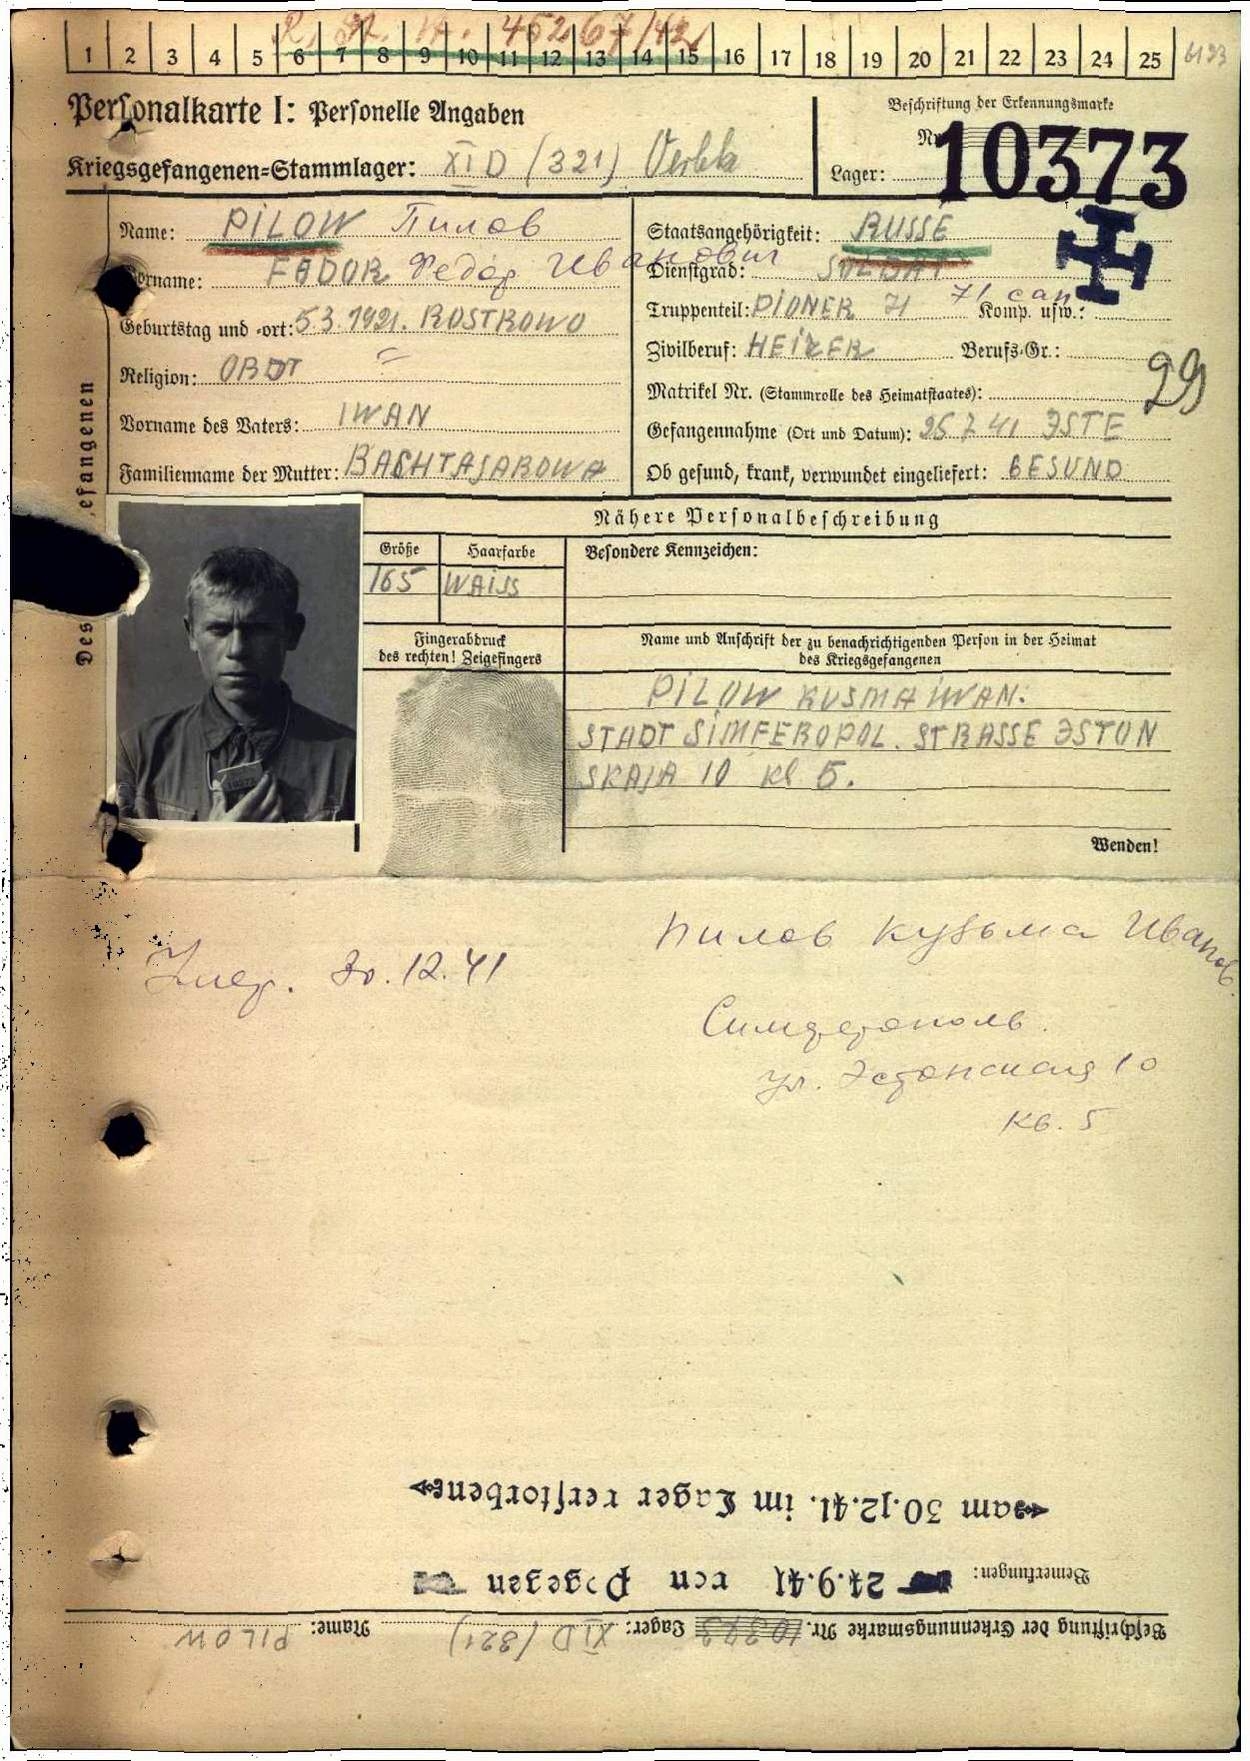 R. A. 45267/42
1 2 3 4 5 6 7 8 9 10 11 12 13 14 15 16 17 18 19 20 21 22 23 24 25
Personalkarte I: Personelle Angaben
Kriegsgefangenen-Stammlager: XI D (321) Oerbke
Beschriftung der Erkennungsmarke
Nr. 10373
Lager:
Des efangenen
Name: PILOW Пилов
Vorname: FADOR Федор Иванович
Geburtstag und -ort: 5.3.1921. ROSTROWO
Religion: ORDT
Vorname des Vaters: IWAN
Familienname der Mutter: BACHTAJAROWA
Staatsangehörigkeit: RUSSE
Dienstgrad: SOLDAT
Truppenteil: PIONER 71 71 сап Komp. usw.:
Zivilberuf: HEIZER Berufs-Gr.:
Matrikel Nr. (Stammrolle des Heimatstaates):
99
Gefangennahme (Ort und Datum): 25.7.41 ЭSTE
Ob gesund, krank, verwundet eingeliefert: GESUND
Nähere Personalbeschreibung
Größe Haarfarbe Besondere Kennzeichen:
165 WAISS
Fingerabdruck
des rechten! Zeigefingers
Name und Anschrift der zu benachrichtigenden Person in der Heimat
des Kriegsgefangenen
PILOW KUSMA IWAN.
STADT SIMFEROPOL. STRASSE ЭSTON
SKAJA 10 kl 5.
Wenden!
Умер. 30.12.41
Пилов Кузьма Иванов.
Симферополь.
ул. Эстонская 10
кв. 5
Beschriftung der Erkennungsmarke Nr. 10373 Lager: XI D (321) Name: PILOW
Bemerkungen: 24.9.41 von Pogegen
am 30.12.41. im Lager verstorben